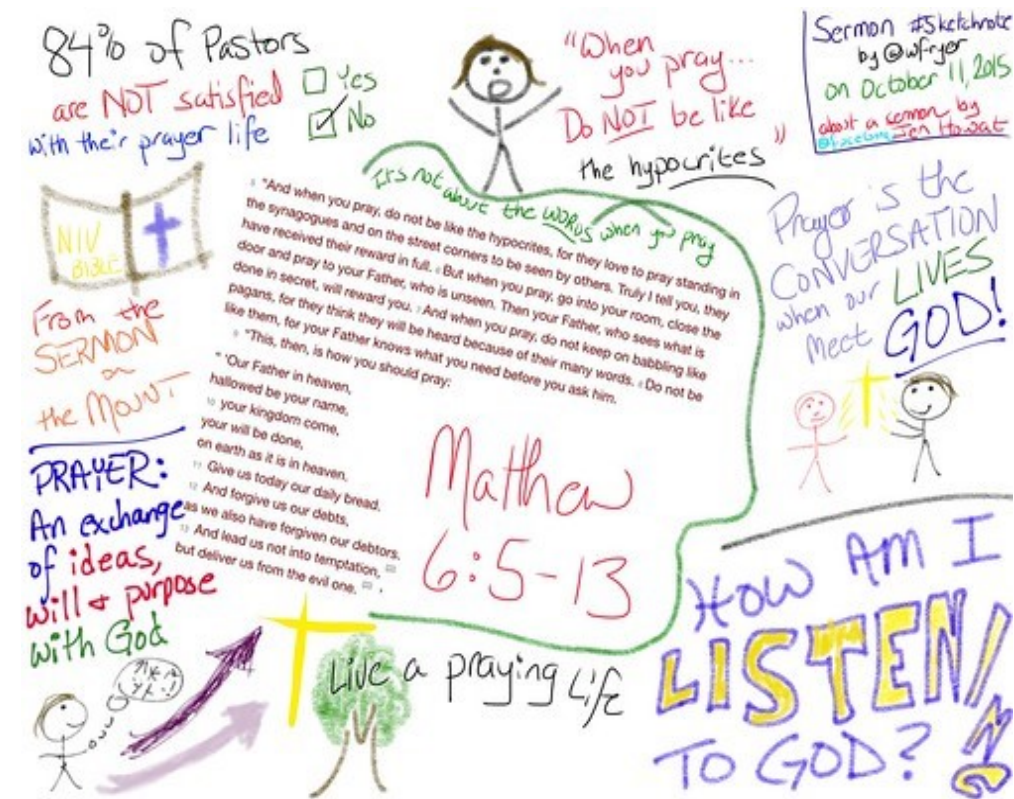 84% of Pastors
are NOT satisfied
with their prayer life
Yes
No
"When
you pray...
Do NOT be like
the hypocrites"
Sermon #Sketchnote
by @wfryer
on October 11, 2015
about a sermon by
Jen Howat
NIV
BIBLE
From the
SERMON
on
the MOUNT
It's not about the WORDS when you pray
5 "And when you pray, do not be like the hypocrites, for they love to pray standing in
the synagogues and on the street corners to be seen by others. Truly I tell you, they
have received their reward in full. 6 But when you pray, go into your room, close the
door and pray to your Father, who is unseen. Then your Father, who sees what is
done in secret, will reward you. 7 And when you pray, do not keep on babbling like
pagans, for they think they will be heard because of their many words. 8 Do not be
like them, for your Father knows what you need before you ask him.
9 "This, then, is how you should pray:
" 'Our Father in heaven,
hallowed be your name,
10 your kingdom come,
your will be done,
on earth as it is in heaven.
11 Give us today our daily bread.
12 And forgive us our debts,
as we also have forgiven our debtors.
13 And lead us not into temptation,
but deliver us from the evil one.
Matthew
6:5-13
Prayer is the
CONVERSATION
when our LIVES
meet GOD!
PRAYER:
An exchange
of ideas,
will & purpose
with God
Live a praying Life
HOW AM I
LISTENING
TO GOD?